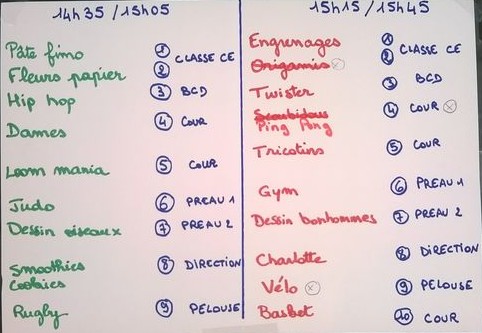 14H35 / 15H05
Pâte fimo ① CLASSE CE
Fleurs papier ②
Hip hop ③ BCD
Dames ④ COUR
Loom mania ⑤ COUR
Judo ⑥ PREAU 1
Dessin oiseaux ⑦ PREAU 2
Smoothies ⑧ DIRECTION
Cookies
Rugby ⑨ PELOUSE
15H15 / 15H45
Engrenages ① CLASSE CE
Origamis ②
Twister ③ BCD
Scoubidous ④ COUR
Ping Pong
Tricotins ⑤ COUR
Gym ⑥ PREAU 1
Dessin bonhommes ⑦ PREAU 2
Charlotte ⑧ DIRECTION
Vélo ⑨ PELOUSE
Basket ⑩ COUR